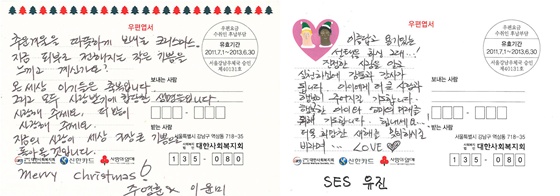 우편엽서
추운겨울 따뜻하게 보내는 크리스마스.
지금 뒤보로 전해지는 작은 기쁨을
느끼고 계신가요?
온 세상 아기들은 축복입니다
그리고 모두 사랑받기에 합당한 생명들입니다
사랑해 주세요. 더 많이
사랑해 주세요.
돌아올 것입니다.
Merry Christmas
우편요금
수취인 후납부담
유효기간
2011.7.1~2013.6.30
서울강남우체국 승인
제40131호
보내는 사람
받는 사람
서울특별시 강남구 역삼동 718-35
대한사회복지회
신한카드
사랑의열매
대한사회복지회
135-080
주영훈 이윤미
우편엽서
이름답고 용기있는
선택을 하신 그대...!
진정한 사랑을
실천하심에 감동과 감사가
됩니다. 아이에게 더 큰 사랑과
행복이 주어지길 기도합니다.
행복한 아이와 엄마의 미래를
위해 기도합니다. 힘내세요...
더욱 희망찬 새해를 맞이하시길
바라며... LOVE
우편요금
수취인 후납부담
유효기간
2011.7.1~2013.6.30
서울강남우체국 승인
제40131호
보내는 사람
받는 사람
서울특별시 강남구 역삼동 718-35
대한사회복지회
신한카드
사랑의열매
대한사회복지회
135-080
SES 유진